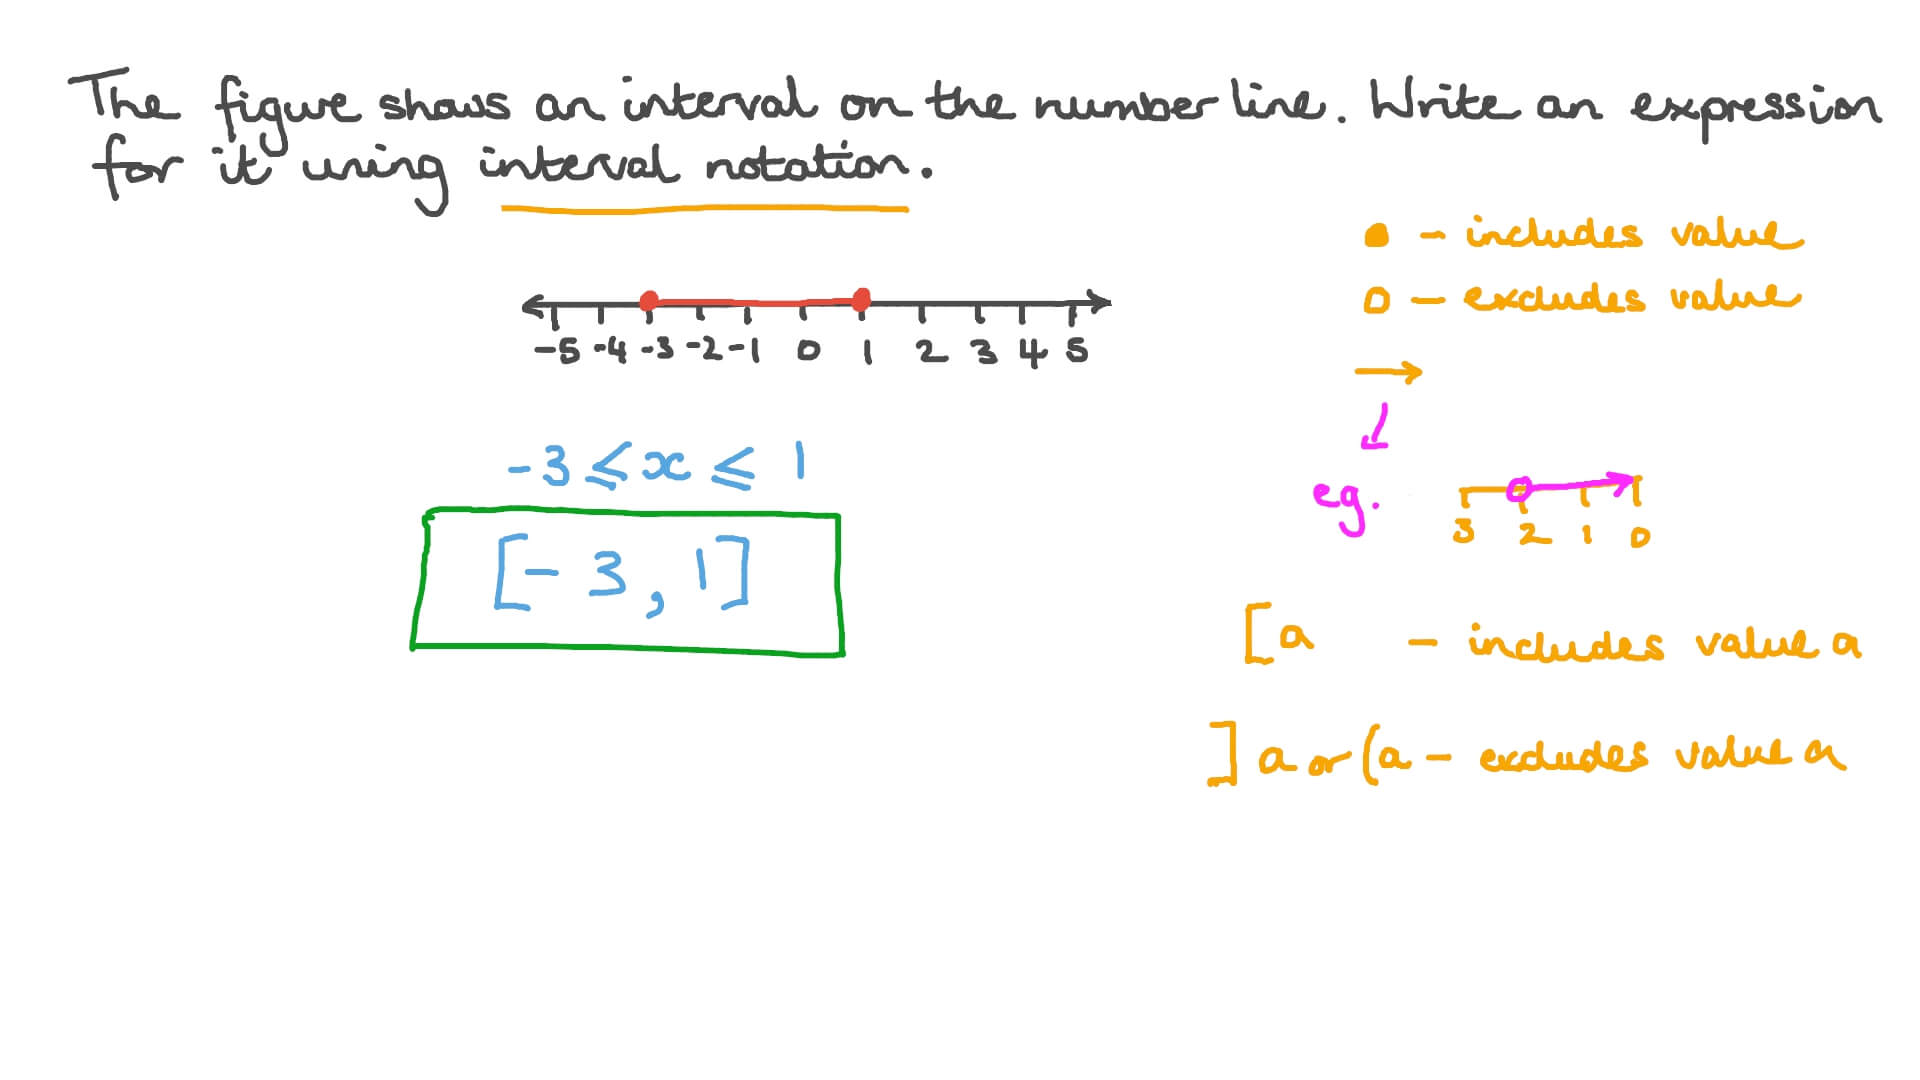 The figure shows an interval on the number line. Write an expression
for it using interval notation.
● – includes value
○ – excludes value
→
-5 -4 -3 -2 -1 0 1 2 3 4 5
-3 ⩽ x ⩽ 1
eg.
3 2 1 0
[-3, 1]
[a – includes value a
]a or (a – excludes value a